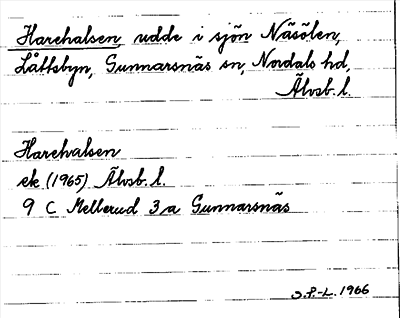 Harehalsen, udde i sjön Näsölen,
Låbbyn, Gunnarsnäs sn, Nordals hd,
Älvsb. l.
Harehalsen
ek (1965) Älvsb. l.
9 C Mellerud 3 a Gunnarsnäs
S.F.-L. 1966